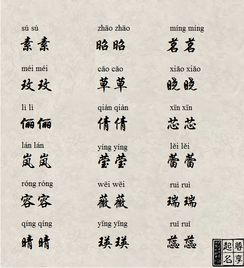 sù sù zhāo zhāo míng míng
素素 昭昭 茗茗
méi méi cǎo cǎo xiǎo xiǎo
玫玫 草草 晓晓
lì lì qiàn qiàn xīn xīn
俪俪 倩倩 芯芯
lán lán yíng yíng lěi lěi
岚岚 莹莹 蕾蕾
róng róng wēi wēi ruì ruì
容容 薇薇 瑞瑞
qíng qíng yīng yīng ruǐ ruǐ
晴晴 瑛瑛 蕊蕊
起名